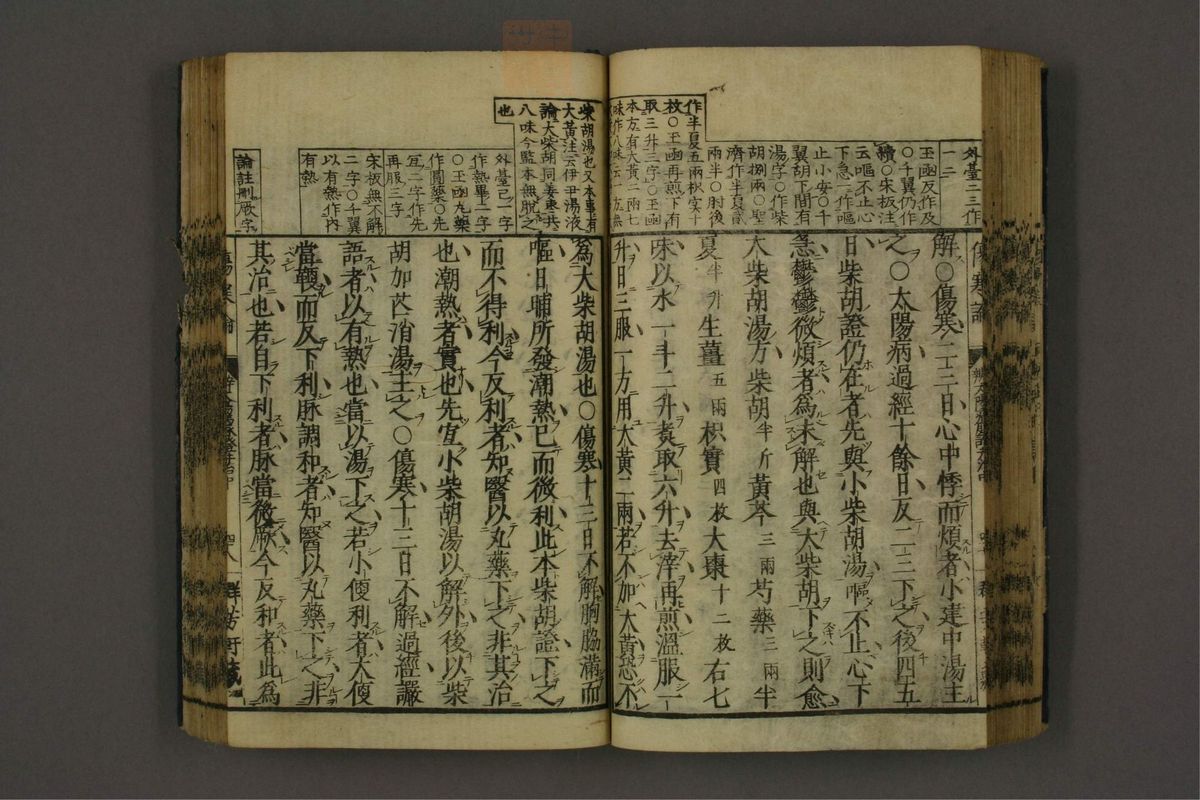 外臺二三作
一二
玉函反作及
○千翼仍作
續○宋板注
云嘔不止心
下急一作嘔
止小安○千
翼胡下間有
湯字○作柴
胡捌兩○聖
濟作半夏貳
兩半○肘後
作半夏五兩枳實十
枚○玉函再煎下有
取三升三字○玉函
本方有大黃二兩七
味作八味云一方無
解○傷寒二三日心中悸而煩者小建中湯主
之○太陽病過經十餘日反二三下之後四五
日柴胡證仍在者先與小柴胡湯嘔不止心下
急鬱鬱微煩者為未解也與大柴胡下之則愈
大柴胡湯方柴胡半斤黃芩三兩芍藥三兩半
夏半升生薑五兩枳實四枚大棗十二枚右七
味以水一斗二升煑取六升去滓再煎溫服一
升日三服一方用大黃二兩若不加大黃恐不
柴胡湯也又本事有
大黃注云伊尹湯液
論大柴胡同姜棗共
八味今監本無脫之
也
外臺已一字
作熱畢二字
○玉函丸藥
作圓藥○先
宜二字作先
再服三字
宋板無不解
二字○千翼
以有熱作內
有熱
論註刪厥字
為大柴胡湯也○傷寒十三日不解胸脇滿而
嘔日晡所發潮熱已而微利此本柴胡證下之
而不得利今反利者知醫以丸藥下之非其治
也潮熱者實也先宜小柴胡湯以解外後以柴
胡加芒消湯主之○傷寒十三日不解過經讝
語者以有熱也當以湯下之若小便利者大便
當鞕而反下利脉調和者知醫以丸藥下之非
其治也若自下利者脉當微厥今反和者此為